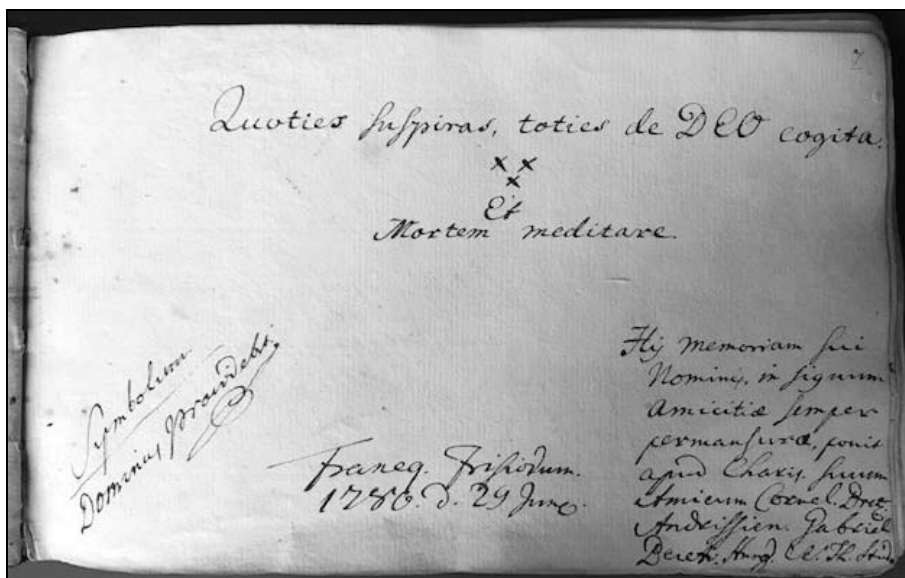 7
Quoties suspiras, toties de DEO cogita.
Et
Mortem meditare.
Symbolum
Dominus providebit.
Franeq. Frisiorum.
1786. d. 29 Juny.
Hij memoriam sui
Nominis, in signum
Amicitiæ semper
permansuræ, ponit
apud Charis. suum
Amicum Cornel. Dret.
Andrissien. Gabriel
Bereth. Hung.